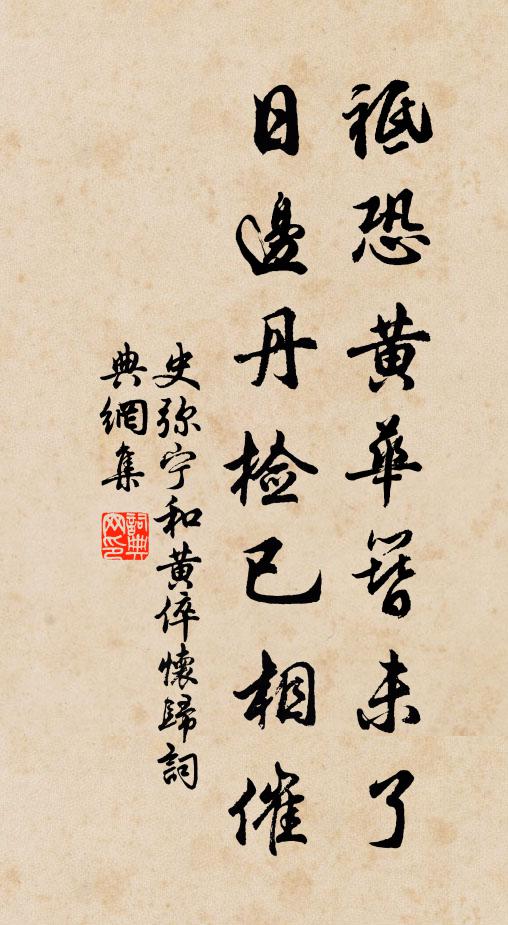 祗恐黄華簪未了
日邊丹檢已相催
史弥宁和黄倅懷歸詞
典網集
詞典网印